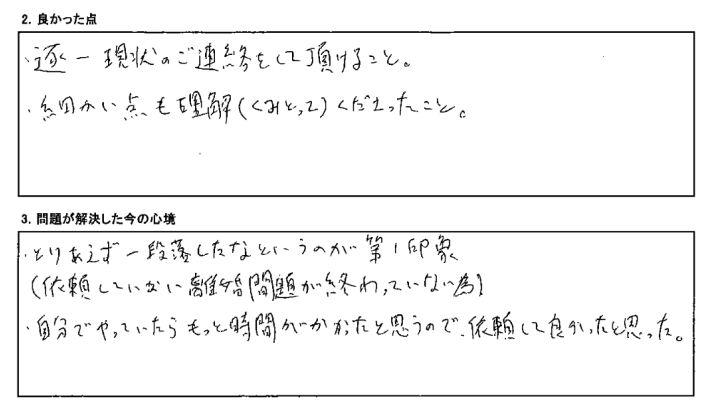 2. 良かった点
・逐一現状のご連絡をして頂けること。
・細かい点も理解(くみとって)くださったこと。
3. 問題が解決した今の心境
・とりあえず一段落したなというのが第1印象
(依頼していない離婚問題が終わっていない為)
・自分でやっていたらもっと時間がかかったと思うので、依頼して良かったと思った。